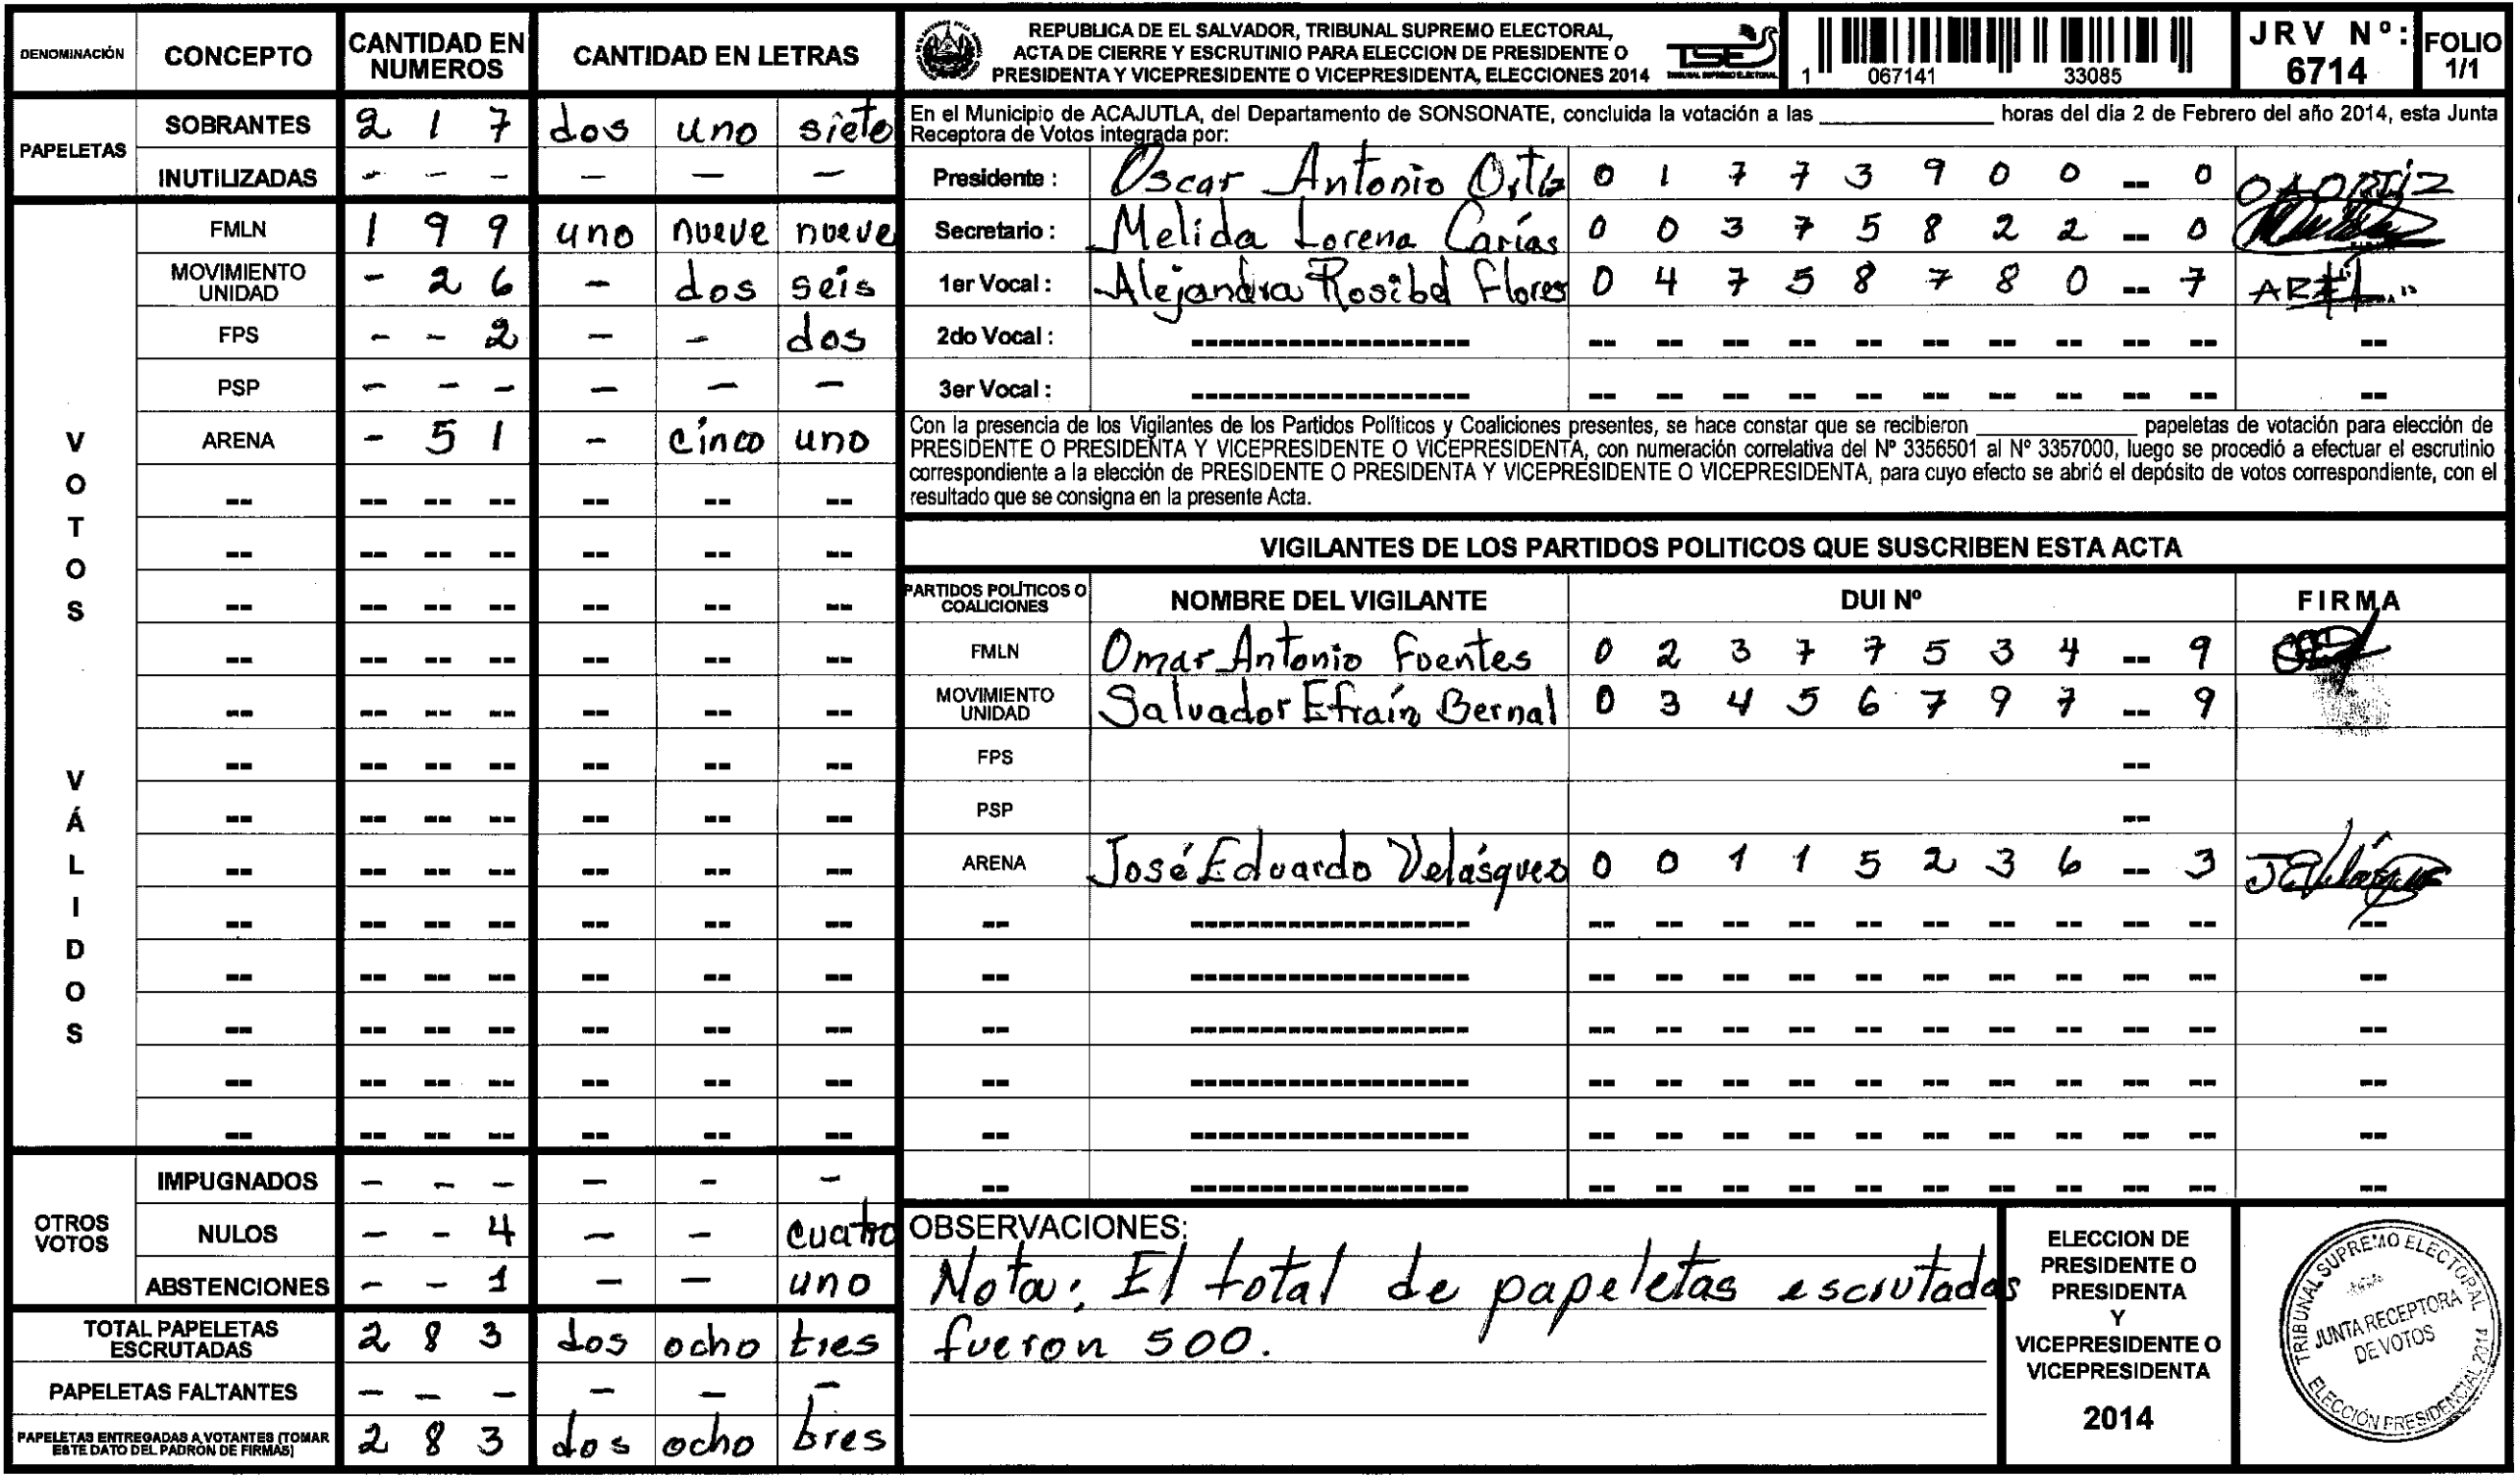 DENOMINACIÓN CONCEPTO CANTIDAD EN NUMEROS CANTIDAD EN LETRAS
PAPELETAS
SOBRANTES 2 1 7 dos uno siete
INUTILIZADAS - - - - - -
VOTOS VÁLIDOS
FMLN 1 9 9 uno nueve nueve
MOVIMIENTO UNIDAD - 2 6 - dos seis
FPS - - 2 - - dos
PSP - - - - - -
ARENA - 5 1 - cinco uno
-- -- -- -- -- -- --
-- -- -- -- -- -- --
-- -- -- -- -- -- --
-- -- -- -- -- -- --
-- -- -- -- -- -- --
-- -- -- -- -- -- --
-- -- -- -- -- -- --
-- -- -- -- -- -- --
-- -- -- -- -- -- --
-- -- -- -- -- -- --
-- -- -- -- -- -- --
-- -- -- -- -- -- --
-- -- -- -- -- -- --
OTROS VOTOS
IMPUGNADOS - - - - - -
NULOS - - 4 - - cuatro
ABSTENCIONES - - 1 - - uno
TOTAL PAPELETAS ESCRUTADAS 2 8 3 dos ocho tres
PAPELETAS FALTANTES - - - - - -
PAPELETAS ENTREGADAS A VOTANTES (TOMAR ESTE DATO DEL PADRON DE FIRMAS) 2 8 3 dos ocho tres
REPUBLICA DE EL SALVADOR, TRIBUNAL SUPREMO ELECTORAL,
ACTA DE CIERRE Y ESCRUTINIO PARA ELECCION DE PRESIDENTE O
PRESIDENTA Y VICEPRESIDENTE O VICEPRESIDENTA, ELECCIONES 2014
TSE
TRIBUNAL SUPREMO ELECTORAL
1 067141 33085
JRV Nº: 6714
FOLIO 1/1
En el Municipio de ACAJUTLA, del Departamento de SONSONATE, concluida la votación a las ____________ horas del día 2 de Febrero del año 2014, esta Junta
Receptora de Votos integrada por:
Presidente : Oscar Antonio Ortiz 0 1 7 7 3 9 0 0 -- 0 OAORTIZ
Secretario : Melida Lorena Carías 0 0 3 7 5 8 2 2 -- 0
1er Vocal : Alejandra Rosibel Flores 0 4 7 5 8 7 8 0 -- 7
2do Vocal : ------------------- -- -- -- -- -- -- -- -- -- -- --
3er Vocal : ------------------- -- -- -- -- -- -- -- -- -- -- --
Con la presencia de los Vigilantes de los Partidos Políticos y Coaliciones presentes, se hace constar que se recibieron ____________ papeletas de votación para elección de
PRESIDENTE O PRESIDENTA Y VICEPRESIDENTE O VICEPRESIDENTA, con numeración correlativa del Nº 3356501 al Nº 3357000, luego se procedió a efectuar el escrutinio
correspondiente a la elección de PRESIDENTE O PRESIDENTA Y VICEPRESIDENTE O VICEPRESIDENTA, para cuyo efecto se abrió el depósito de votos correspondiente, con el
resultado que se consigna en la presente Acta.
VIGILANTES DE LOS PARTIDOS POLITICOS QUE SUSCRIBEN ESTA ACTA
PARTIDOS POLÍTICOS O COALICIONES NOMBRE DEL VIGILANTE DUI Nº FIRMA
FMLN Omar Antonio Fuentes 0 2 3 7 7 5 3 4 -- 9
MOVIMIENTO UNIDAD Salvador Efraín Bernal 0 3 4 5 6 7 9 7 -- 9
FPS --
PSP --
ARENA José Eduardo Velásquez 0 0 1 1 5 2 3 6 -- 3 JEVelásquez
-- ------------------- -- -- -- -- -- -- -- -- -- -- --
-- ------------------- -- -- -- -- -- -- -- -- -- -- --
-- ------------------- -- -- -- -- -- -- -- -- -- -- --
-- ------------------- -- -- -- -- -- -- -- -- -- -- --
-- ------------------- -- -- -- -- -- -- -- -- -- -- --
-- ------------------- -- -- -- -- -- -- -- -- -- -- --
OBSERVACIONES:
Nota: El total de papeletas escrutadas
fueron 500.
ELECCION DE
PRESIDENTE O
PRESIDENTA
Y
VICEPRESIDENTE O
VICEPRESIDENTA
2014
TRIBUNAL SUPREMO ELECTORAL
JUNTA RECEPTORA
DE VOTOS
ELECCIÓN PRESIDENCIAL 2014